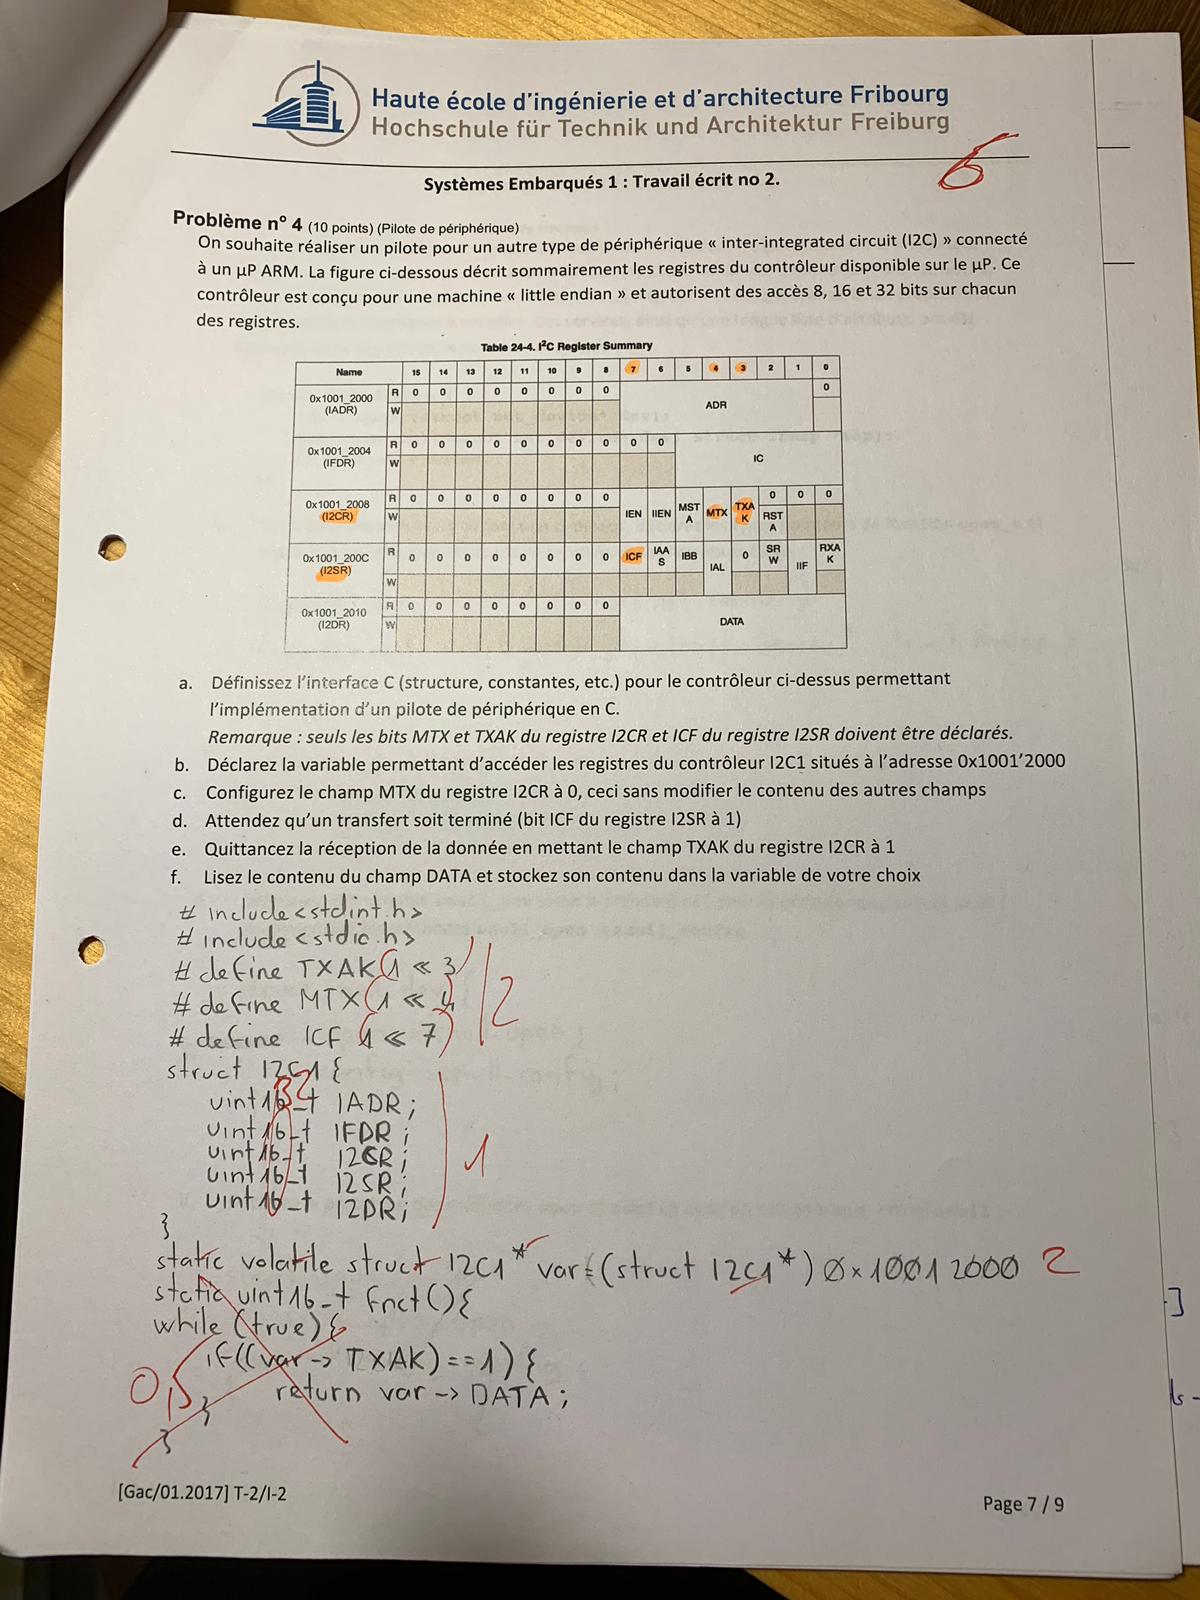 Haute école d'ingénierie et d'architecture Fribourg
Hochschule für Technik und Architektur Freiburg
6
Systèmes Embarqués 1 : Travail écrit no 2.
Problème n° 4 (10 points) (Pilote de périphérique)
On souhaite réaliser un pilote pour un autre type de périphérique « inter-integrated circuit (I2C) » connecté
à un µP ARM. La figure ci-dessous décrit sommairement les registres du contrôleur disponible sur le µP. Ce
contrôleur est conçu pour une machine « little endian » et autorisent des accès 8, 16 et 32 bits sur chacun
des registres.
Table 24-4. I²C Register Summary
Name 15 14 13 12 11 10 9 8 7 6 5 4 3 2 1 0
0x1001_2000 (IADR) R 0 0 0 0 0 0 0 0 ADR 0
W
0x1001_2004 (IFDR) R 0 0 0 0 0 0 0 0 0 0 IC
W
0x1001_2008 (I2CR) R 0 0 0 0 0 0 0 0 IEN IIEN MSTA MTX TXAK 0 0 0
W RSTA
0x1001_200C (I2SR) R 0 0 0 0 0 0 0 0 ICF IAAS IBB IAL 0 SRW IIF RXAK
W
0x1001_2010 (I2DR) R 0 0 0 0 0 0 0 0 DATA
W
a. Définissez l'interface C (structure, constantes, etc.) pour le contrôleur ci-dessus permettant
l'implémentation d'un pilote de périphérique en C.
Remarque : seuls les bits MTX et TXAK du registre I2CR et ICF du registre I2SR doivent être déclarés.
b. Déclarez la variable permettant d'accéder les registres du contrôleur I2C1 situés à l'adresse 0x1001'2000
c. Configurez le champ MTX du registre I2CR à 0, ceci sans modifier le contenu des autres champs
d. Attendez qu'un transfert soit terminé (bit ICF du registre I2SR à 1)
e. Quittancez la réception de la donnée en mettant le champ TXAK du registre I2CR à 1
f. Lisez le contenu du champ DATA et stockez son contenu dans la variable de votre choix
# include <stdint.h>
# include <stdio.h>
# define TXAK (1 << 3)
# define MTX (1 << 4) 2
# define ICF (1 << 7)
struct I2C1 {
32
uint16_t IADR;
uint16_t IFDR;
uint16_t I2CR; 1
uint16_t I2SR;
uint16_t I2DR;
}
static volatile struct I2C1* var = (struct I2C1*) 0x10012000 2
static uint16_t fnct(){
while (true) {
if((var -> TXAK) == 1) {
0,5 return var -> DATA;
}
}
[Gac/01.2017] T-2/I-2
Page 7 / 9